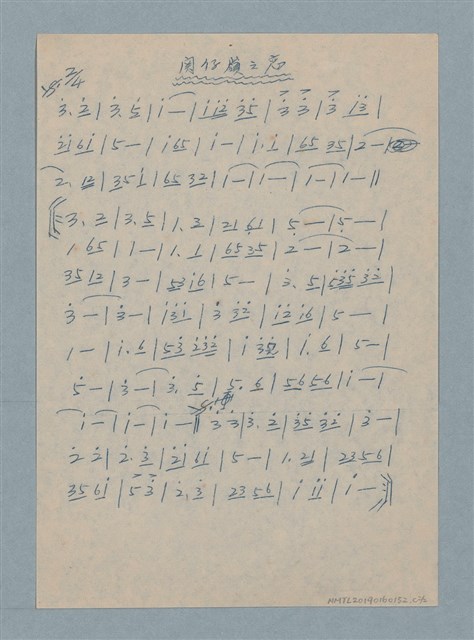 閹仔雞之恋
2/4
3. 2 | 3. 5 | 1 — | 1 12 35 | 3 3 | 3 13 |
21 61 | 5 — | 1 65 | 1 — | 1. 1 | 65 35 | 2 —
2. 12 | 35 1 | 65 32 | 1 — | 1 — | 1 — | 1 — ‖
3. 2 | 3. 5 | 1. 2 | 21 61 | 5 — | 5 — |
1 65 | 1 — | 1. 1 | 65 35 | 2 — | 2 — |
35 12 | 3 — | 53 16 | 5 — | 3. 5 | 535 32 |
3 — | 3 — | 131 | 3 32 | 12 16 | 5 — |
1 — | 1. 6 | 53 232 | 1 35 | 1. 6 | 5 — |
5 — | 3 — | 3. 5 | 5. 6 | 56 56 | 1 — |
1 — | 1 — | 1 — ‖ 3 3 | 3. 2 | 35 32 | 3 — |
2 2 | 2. 3 | 21 61 | 5 — | 1. 21 | 23 56 |
35 61 | 5 3 | 2. 3 | 23 56 | 1 11 | 1 — ‖
NMTL20190160152